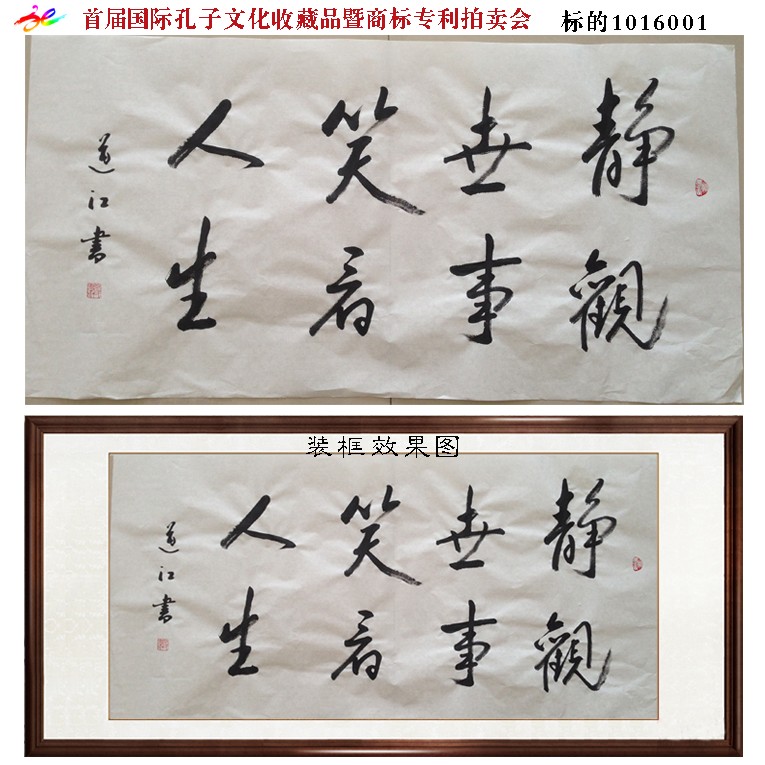 首届国际孔子文化收藏品暨商标专利拍卖会 标的1016001
静觀
世事
笑看
人生
道江書
装框效果图
静觀
世事
笑看
人生
道江書